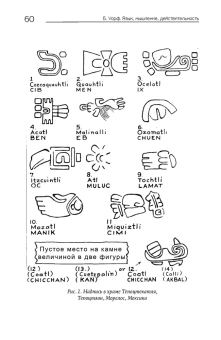 60
Б. Уорф. Язык, мышление, действительность
1 2 3
Cozcaquauhtli Quauhtli Ocelotl
CIB MEN IX
4. 5. 6.
Acatl Malinalli Ozomatli
BEN EB CHUEN
7. 8. 9.
Itzcuintli Atl Tochtli
OC MULUC LAMAT
10. 11.
Mazatl Miquiztli
MANIK CIMI
Пустое место на камне
величиной в две фигуры
(12) (13.) or 12. (14)
(Coatl) (Cuetzpalin) Coatl (Calli)
(CHICCHAN) (KAN) CHICCHAN (AKBAL)
Рис. 2. Надпись в храме Тепоцтекатля,
Тепоцтлан, Морелос, Мексика